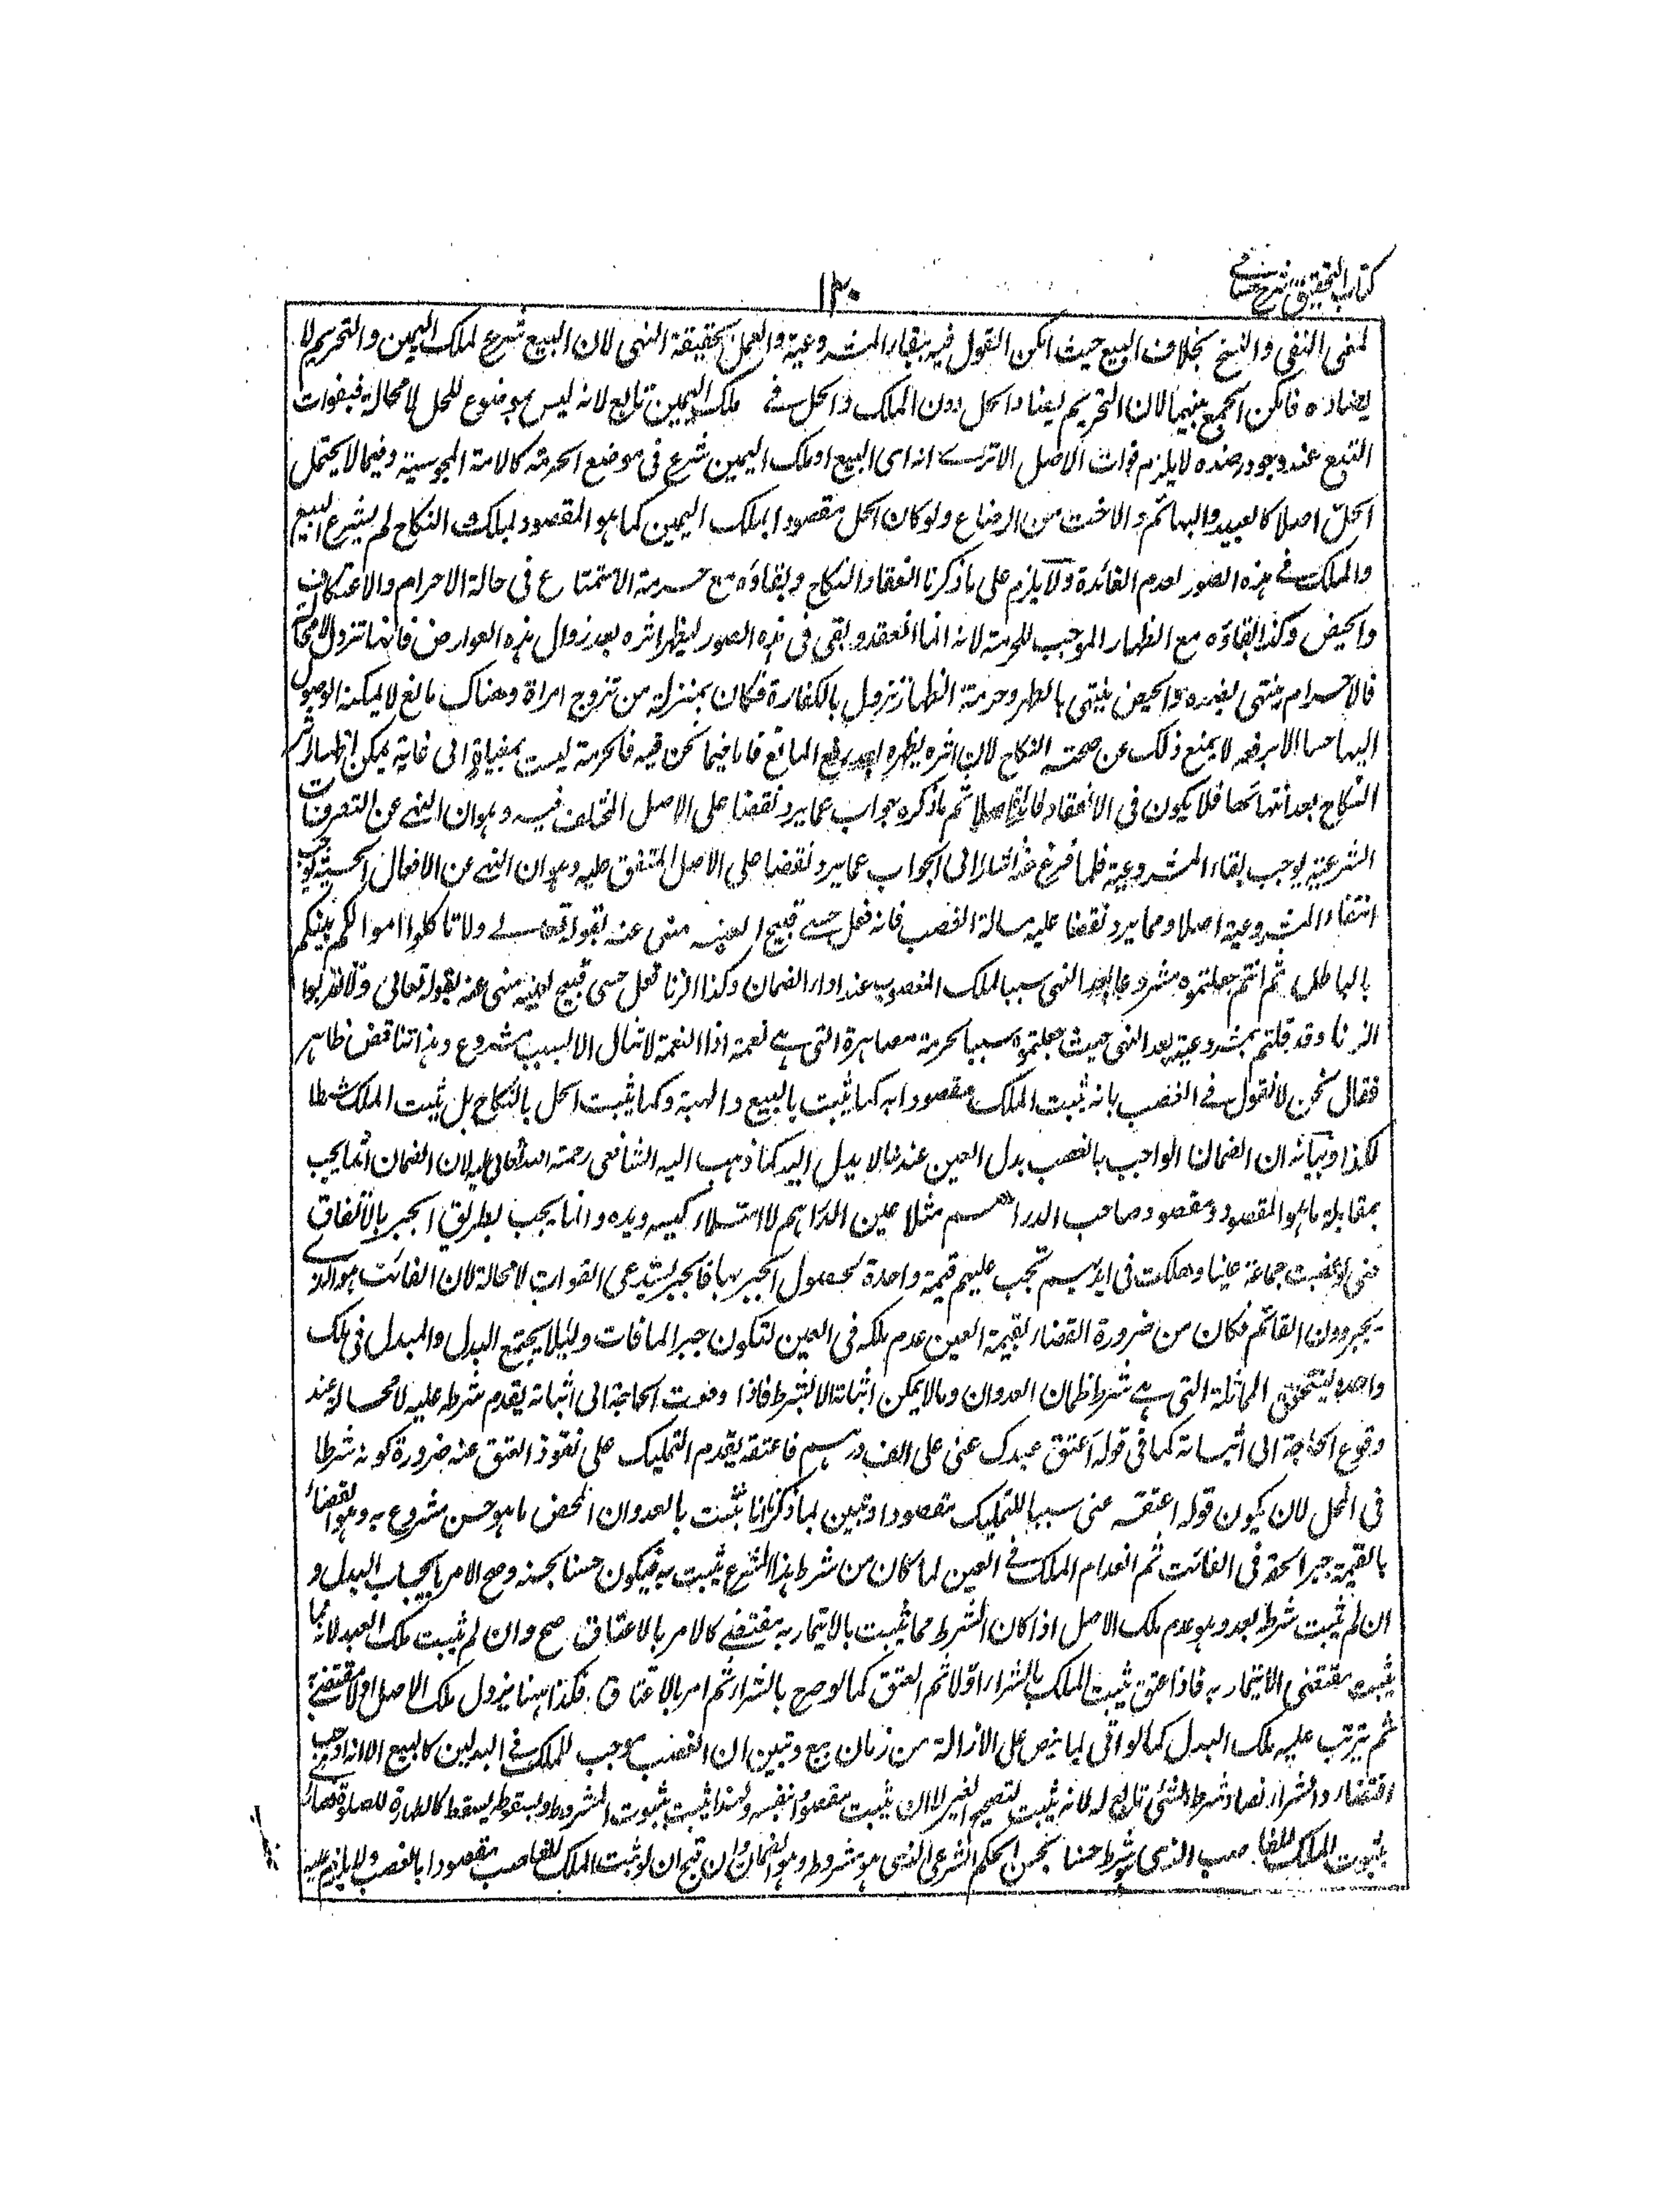 كتاب التحقيق شرح حسامي
١٣٠
لمعنى النفى والنسخ بخلاف البيع حيث امكن القول فيه ببقاء المشروعية والعمل بحقيقة النهى لان البيع شرع لملك اليمين والتحريم لا
يضاده فامكن الجمع بينهما لان التحريم يضاد الحل دون الملك والحل فى ملك اليمين تابع لانه ليس بموضوع للحل لا محالة فبفوات
التبع عند وجود ضده لا يلزم فوات الاصل الا ترى انه اى البيع او ملك اليمين شرع فى موضع الحرمة كالامة المجوسية وفيما لا يحتمل
الحل اصلا كالعبيد والبهائم والاخت من الرضاع ولو كان الحل مقصودا بملك اليمين كما هو المقصود بملك النكاح لم يشرع البيع
والملك فى هذه الصور لعدم الفائدة ولا يلزم على ما ذكرنا انعقاد النكاح وبقاؤه مع حرمة الاستمتاع فى حالة الاحرام والاعتكاف
والحيض وكذا بقاؤه مع الظهار الموجب للحرمة لانه انما انعقد وبقى فى هذه الصور ليظهر اثره بعد زوال هذه العوارض فانها تزول لا محالة
فالاحرام ينتهى بضده والحيض ينتهى بالطهر وحرمة الظهار تزول بالكفارة فكان بمنزلة من تزوج امراة وهناك مانع لا يمكنه الوصول
اليها حسا الا برفعه لا يمنع ذلك عن صحة النكاح لان اثره يظهر بعد رفع المانع فاما فيما نحن فيه فالحرمة ليست بمغياة الى غاية يمكن اظهار اثر
النكاح بعد انتهائها فلا يكون فى الانعقاد فائدة اصلا ثم ما ذكره جواب عما يرد نقضا على الاصل المختلف فيه وهو ان النهى عن التصرفات
الشرعية يوجب بقاء المشروعية فلما فرغ منه اشار الى الجواب عما يرد نقضا على الاصل المتفق عليه وهو ان النهى عن الافعال الحسية يوجب
انتفاء المشروعية اصلا ومما يرد نقضا عليه مسالة الغصب فانه فعل حسى قبيح لعينه منهى عنه بقوله تعالى ولا تاكلوا اموالكم بينكم
بالباطل ثم انتم جعلتموه مشروعا بعد النهى سببا لملك المغصوب عند اداء الضمان وكذا الزنا فعل حسى قبيح لعينه منهى عنه بقوله تعالى ولا تقربوا
الزنا وقد قلتم بمشروعيته بعد النهى حيث جعلتموه سببا لحرمة مصاهرة التى هى نعمة اذا النعمة لا تنال الا بسبب مشروع وهذا تناقض ظاهر
فقال نحن لا نقول فى الغصب بانه يثبت الملك مقصودا به كما يثبت بالبيع والهبة وكما يثبت الحل بالنكاح بل يثبت الملك شرطا
لكذا وبيانه ان الضمان الواجب بالغصب بدل العين عندنا لا بدل اليد كما ذهب اليه الشافعى رحمة الله تعالى عليه لان الضمان انما يجب
بمقابلة ما هو المقصود ومقصود صاحب الدراهم مثلا عين الدراهم لا امتلاء كيسه ويده وانما يجب بطريق الجبر بالاتفاق
حتى لو غصبت جماعة عينا وهلكت فى ايديهم تجب عليهم قيمة واحدة لحصول الجبر بها فالجبر يستدعى الفوات لا محالة لان الفائت هو الذى
يجبر دون القائم فكان من ضرورة القضاء بقيمة العين عدم ملكه فى العين لتكون جبرا لما فات ولئلا يجتمع البدل والمبدل فى ملك
واحد وليتحقق المماثلة التى هى شرط ضمان العدوان وما لا يمكن اثباته الا بشرط فاذا وقعت الحاجة الى اثباته يقدم شرطه عليه لا محالة عند
وقوع الحاجة الى اثباته كما فى قوله اعتق عبدك عنى على الف درهم فاعتقه يقدم التمليك على نفوذ العتق عنه ضرورة كونه شرطا
فى المحل لان يكون قوله اعتقه عنى سببا للتمليك مقصودا وتبين بما ذكرنا انا نثبت بالعدوان المحض ما هو حسن مشروع به وهو القضاء
بالقيمة جبرا لحقه فى الفائت ثم انعدام الملك فى العين لما كان من شرط هذا الشرع يثبت به فيكون حسنا بحسنه وصح الامر بايجاب البدل و
ان لم يثبت شرطه بعد وهو عدم ملك الاصل اذا كان الشرط مما يثبت بالايتمار به مقتضى كالامر بالاعتاق صح وان لم يثبت ملك العبد لانه مما
يثبت مقتضى الايتمار به فاذا عتق يثبت الملك بالشراء اولا ثم العتق كما لو صرح بالشراء ثم امر بالاعتاق فكذا ههنا يزول ملك الاصل اولا مقتضى
ثم يترتب عليه ملك البدل كما لو اتى بما ينص على الازالة من زمان بيع وتبين ان الغصب موجب للملك فى البدلين كالبيع الا انه اوجب
اقتضاء والشراء نصا وشرط الشئ تابع له لانه يثبت لتصحيح الغير لا ان يثبت مقصودا بنفسه ولهذا يثبت بثبوت المشروط ويسقط بسقوطه كالطهارة للصلوة فصار
ثبوت الملك للغاصب الذى هو شرط حسنا بحسن الحكم الشرعى الذى هو مشروط وهو الضمان وان قبح ان لو ثبت الملك للغاصب مقصودا بالغصب ولا يلزم عليه